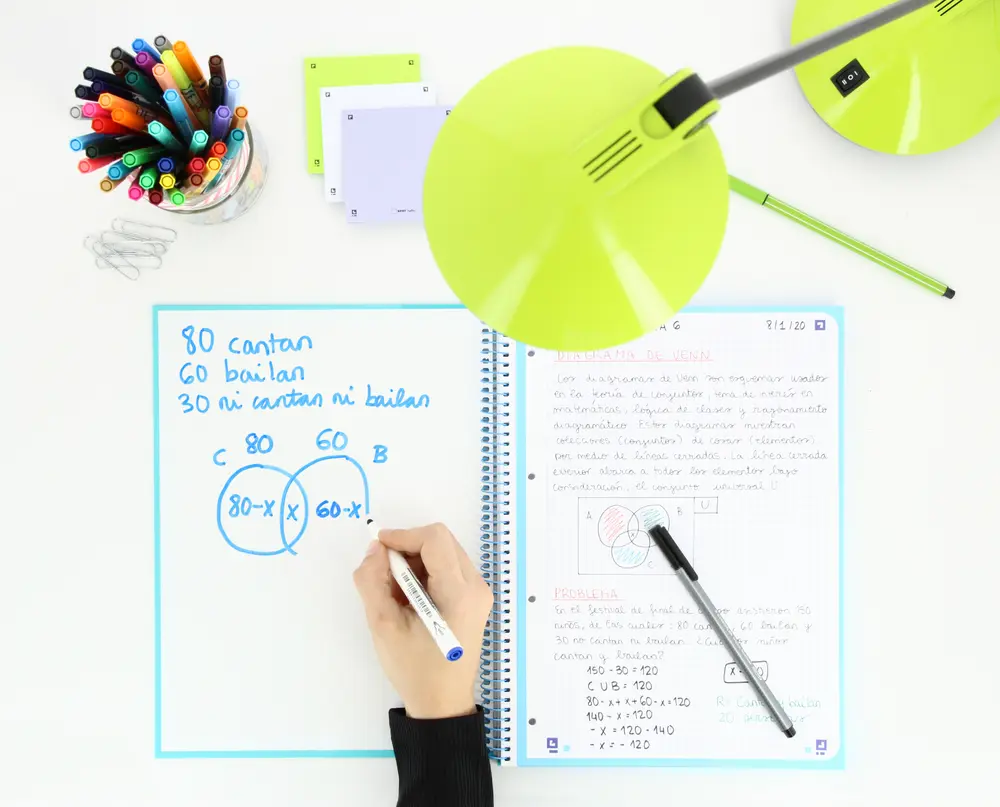 80 cantan
60 bailan
30 ni cantan ni bailan
80 60
C B
80-x x 60-x
A 6 8/1/20
DIAGRAMA DE VENN
Los diagramas de Venn son esquemas usados
en la teoría de conjuntos, tema de interés en
matemáticas, lógica de clases y razonamiento
diagramático. Estos diagramas muestran
colecciones (conjuntos) de cosas (elementos)
por medio de líneas cerradas. La línea cerrada
exterior abarca a todos los elementos bajo
consideración, el conjunto universal U.
U
A B
x
C
PROBLEMA
En el festival de final de asistieron 150
niños, de los cuales: 80 cantan, 60 bailan y
30 no cantan ni bailan. ¿Cuántos niños
cantan y bailan?
150-30=120
C U B = 120
80-x+x+60-x=120
140-x=120
-x=120-140
-x=-120
R: Cantan y bailan
20